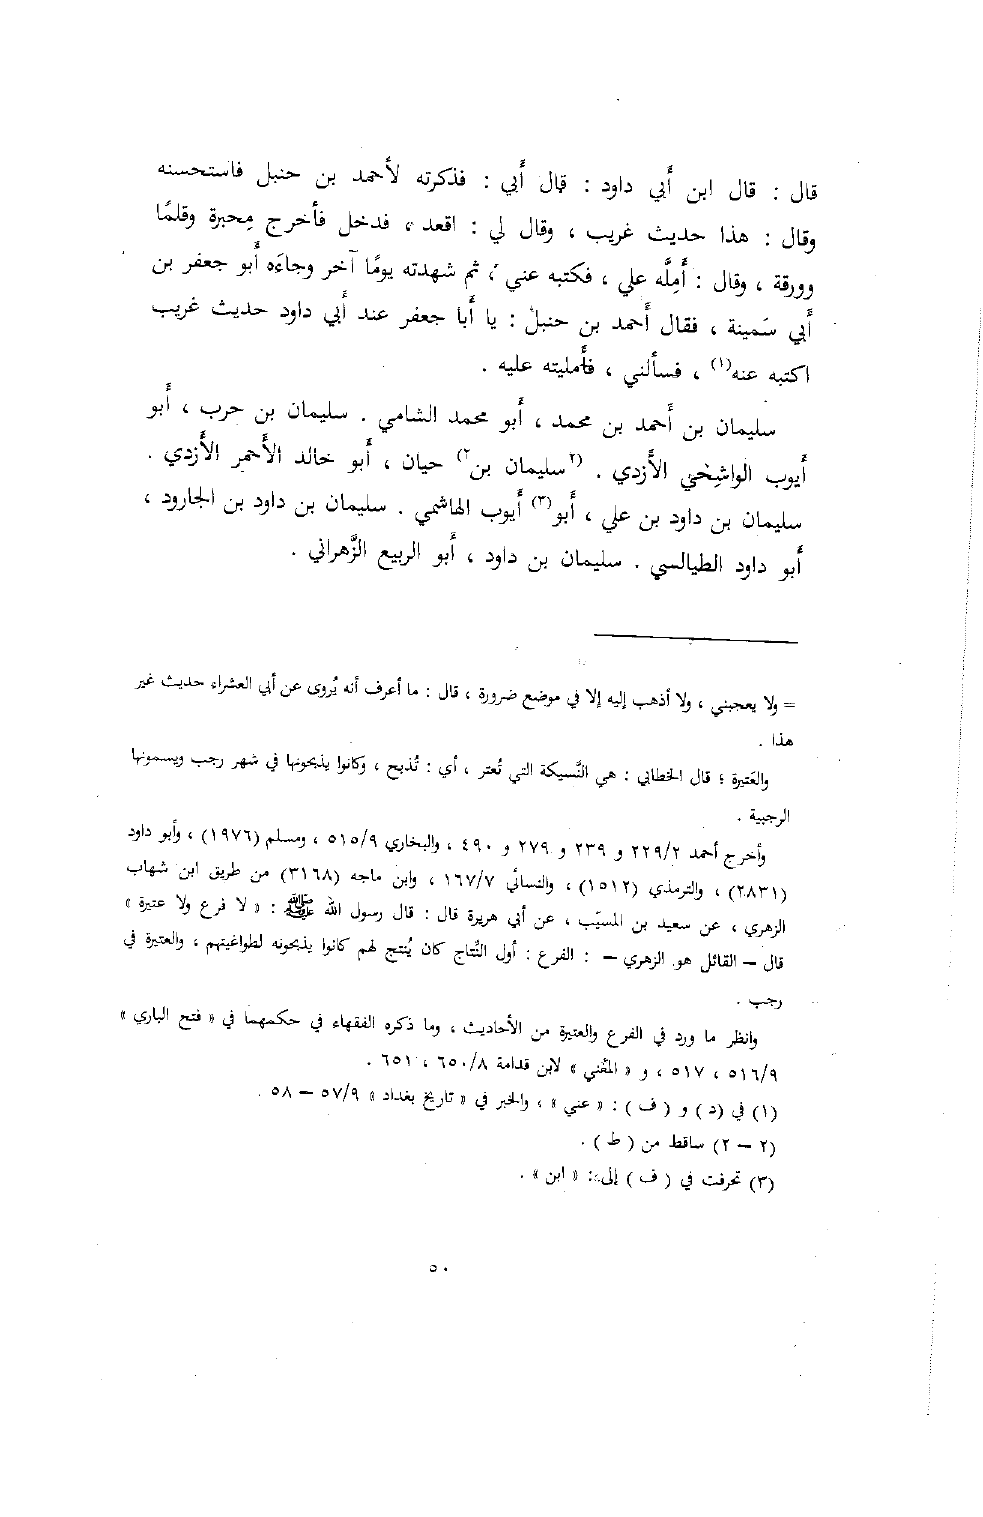 قال : قال ابن أبي داود : قال أبي : فذكرته لأحمد بن حنبل فاستحسنه
وقال : هذا حديث غريب ، وقال لي : اقعد ، فدخل فأخرج مِحبرة وقلمًا
وورقة ، وقال : أَمِلَّه علي ، فكتبه عني ، ثم شهدته يومًا آخر وجاءَه أبو جعفر بن
أبي سَمينة ، فقال أحمد بن حنبل : يا أبا جعفر عند أبي داود حديث غريب
اكتبه عنه(١) ، فسألني ، فأمليته عليه .
سليمان بن أحمد بن محمد ، أبو محمد الشامي . سليمان بن حرب ، أبو
أيوب الواشِحْي الأزدي . (٢سليمان بن٢) حيان ، أبو خالد الأحمر الأزدي .
سليمان بن داود بن علي ، أبو(٣) أيوب الهاشمي . سليمان بن داود بن الجارود ،
أبو داود الطيالسي . سليمان بن داود ، أبو الربيع الزَّهراني .
= ولا يعجبني ، ولا أذهب إليه إلا في موضع ضرورة ، قال : ما أعرف أنه يُروى عن أبي العشراء حديث غير
هذا .
والعَتيرة ؛ قال الخطابي : هي النَّسيكة التي تُعتر ، أي : تُذبح ، وكانوا يذبحونها في شهر رجب ويسمونها
الرجبية .
وأخرج أحمد ٢٢٩/٢ و ٢٣٩ و ٢٧٩ و ٤٩٠ ، والبخاري ٥١٥/٩ ، ومسلم (١٩٧٦) ، وأبو داود
(٢٨٣١) ، والترمذي (١٥١٢) ، والنسائي ١٦٧/٧ ، وابن ماجه (٣١٦٨) من طريق ابن شهاب
الزهري ، عن سعيد بن المسيّب ، عن أبي هريرة قال : قال رسول الله ﷺ : « لا فرع ولا عتيرة »
قال – القائل هو الزهري – : الفرع : أول النَّتاج كان يُنتج لهم كانوا يذبحونه لطواغيتهم ، والعتيرة في
رجب .
وانظر ما ورد في الفرع والعتيرة من الأحاديث ، وما ذكره الفقهاء في حكمهما في « فتح الباري »
٥١٦/٩ ، ٥١٧ ، و « المغني » لابن قدامة ٦٥٠/٨ ، ٦٥١ .
(١) في (د) و ( ف ) : « عني » ، والخبر في « تاريخ بغداد » ٥٧/٩ – ٥٨ .
(٢ – ٢) ساقط من ( ط ) .
(٣) تحرفت في ( ف ) إلى : « ابن » .
٥٠